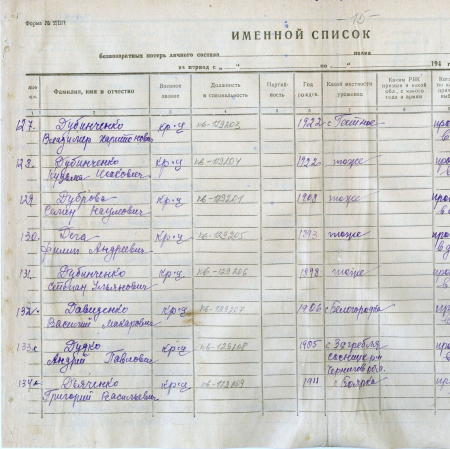 Форма № 2/БП
-15-
ИМЕННОЙ СПИСОК
безвозвратных потерь личного состава полка
за период с „ “ по „ “ 194 г
Фамилия, имя и отчество
Военное звание
Должность и специальность
Партий-ность
Год рожд-я
Какой местности уроженец
Каким РВК призван и какой обл., с какого года в армии
127. Дубинченко Владимир Харитонович кр-ц 1922 с Гатное
128. Дубинченко Кузьма Исакович кр-ц 1922 тоже
129. Дуброва Семен Наумович кр-ц 1908 тоже
130. Дега Филипп Андреевич кр-ц нв-129205 1893 тоже
131. Дубинченко Степан Ульянович кр-ц нв-129206 1898 тоже
132. Давиденко Василий Макарович кр-ц 1906 с Белогородка
133. Дудко Андрей Павлович кр-ц 1905 с Загребля Черниговобл.
134. Дьяченко Григорий Васильевич кр-ц 1911 с Боярка